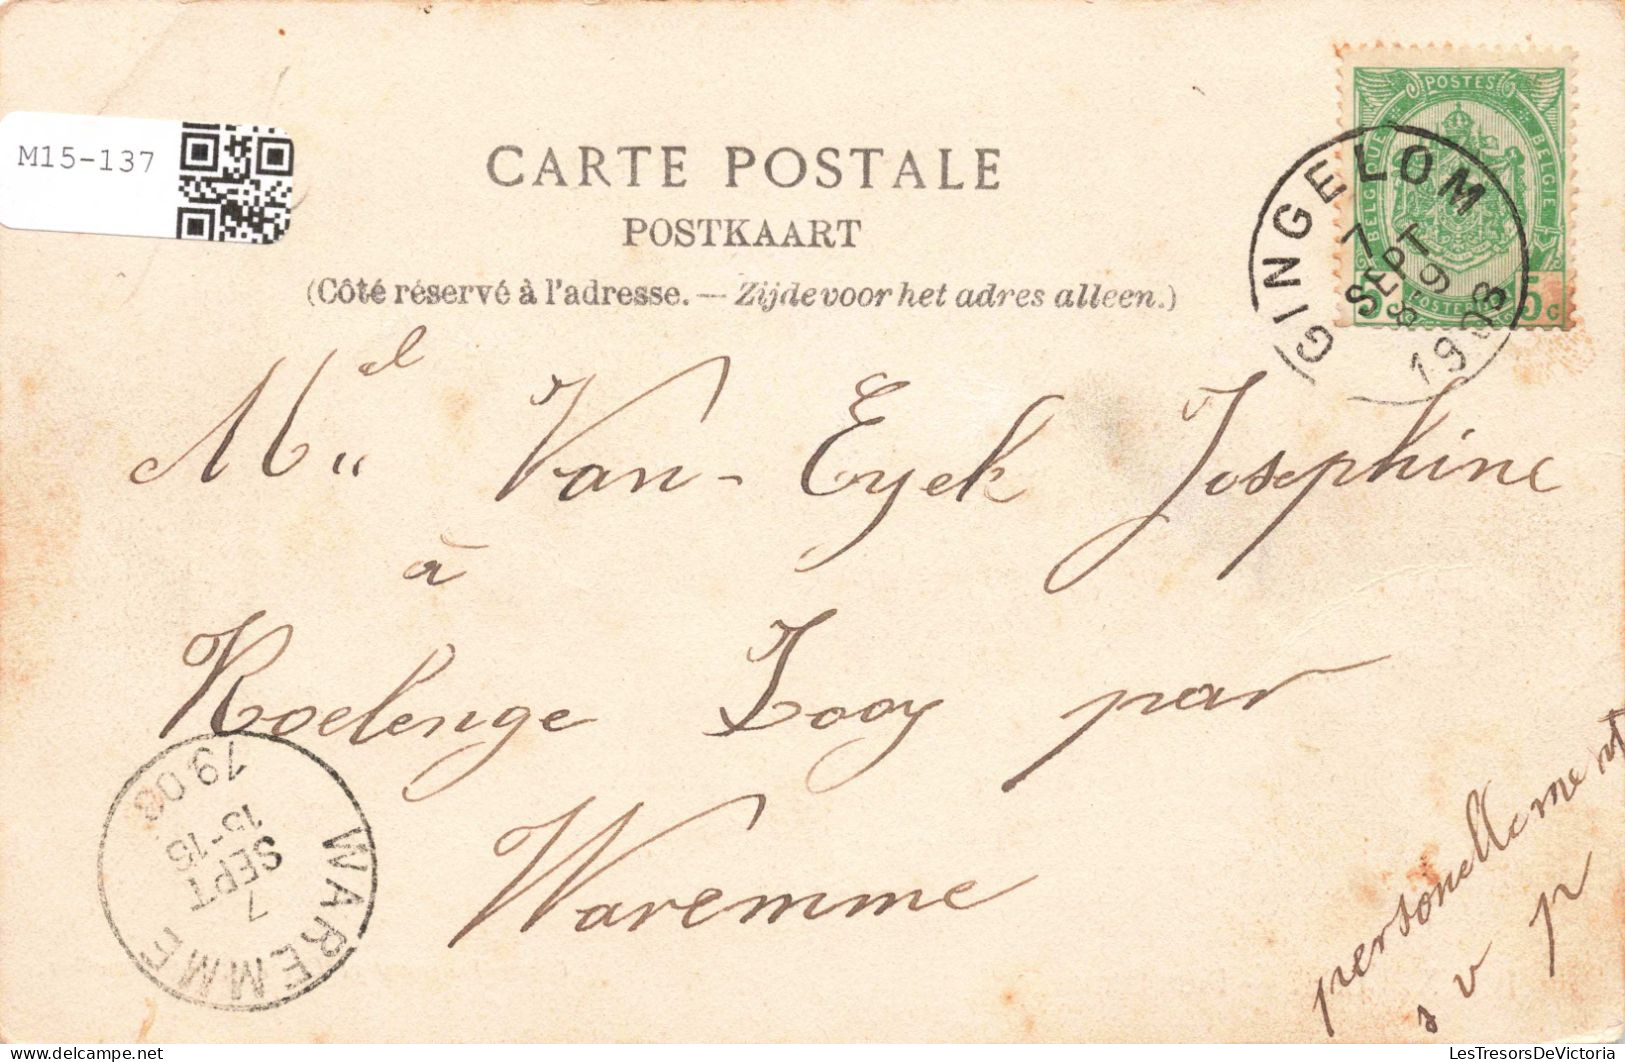 M15-137
CARTE POSTALE
POSTKAART
(Côté réservé à l'adresse. — Zijde voor het adres alleen.)
POSTES
BELGIQUE
BELGIË
5 c 5 c
GINGELOM
7
SEPT
8 9
1903
Mel Van-Eyck Josephine
à
Roelenge Looy par
Waremme
personellement
s v p
WAREMME
7
SEPT
15-15
1903
LesTresorsDeVictoria